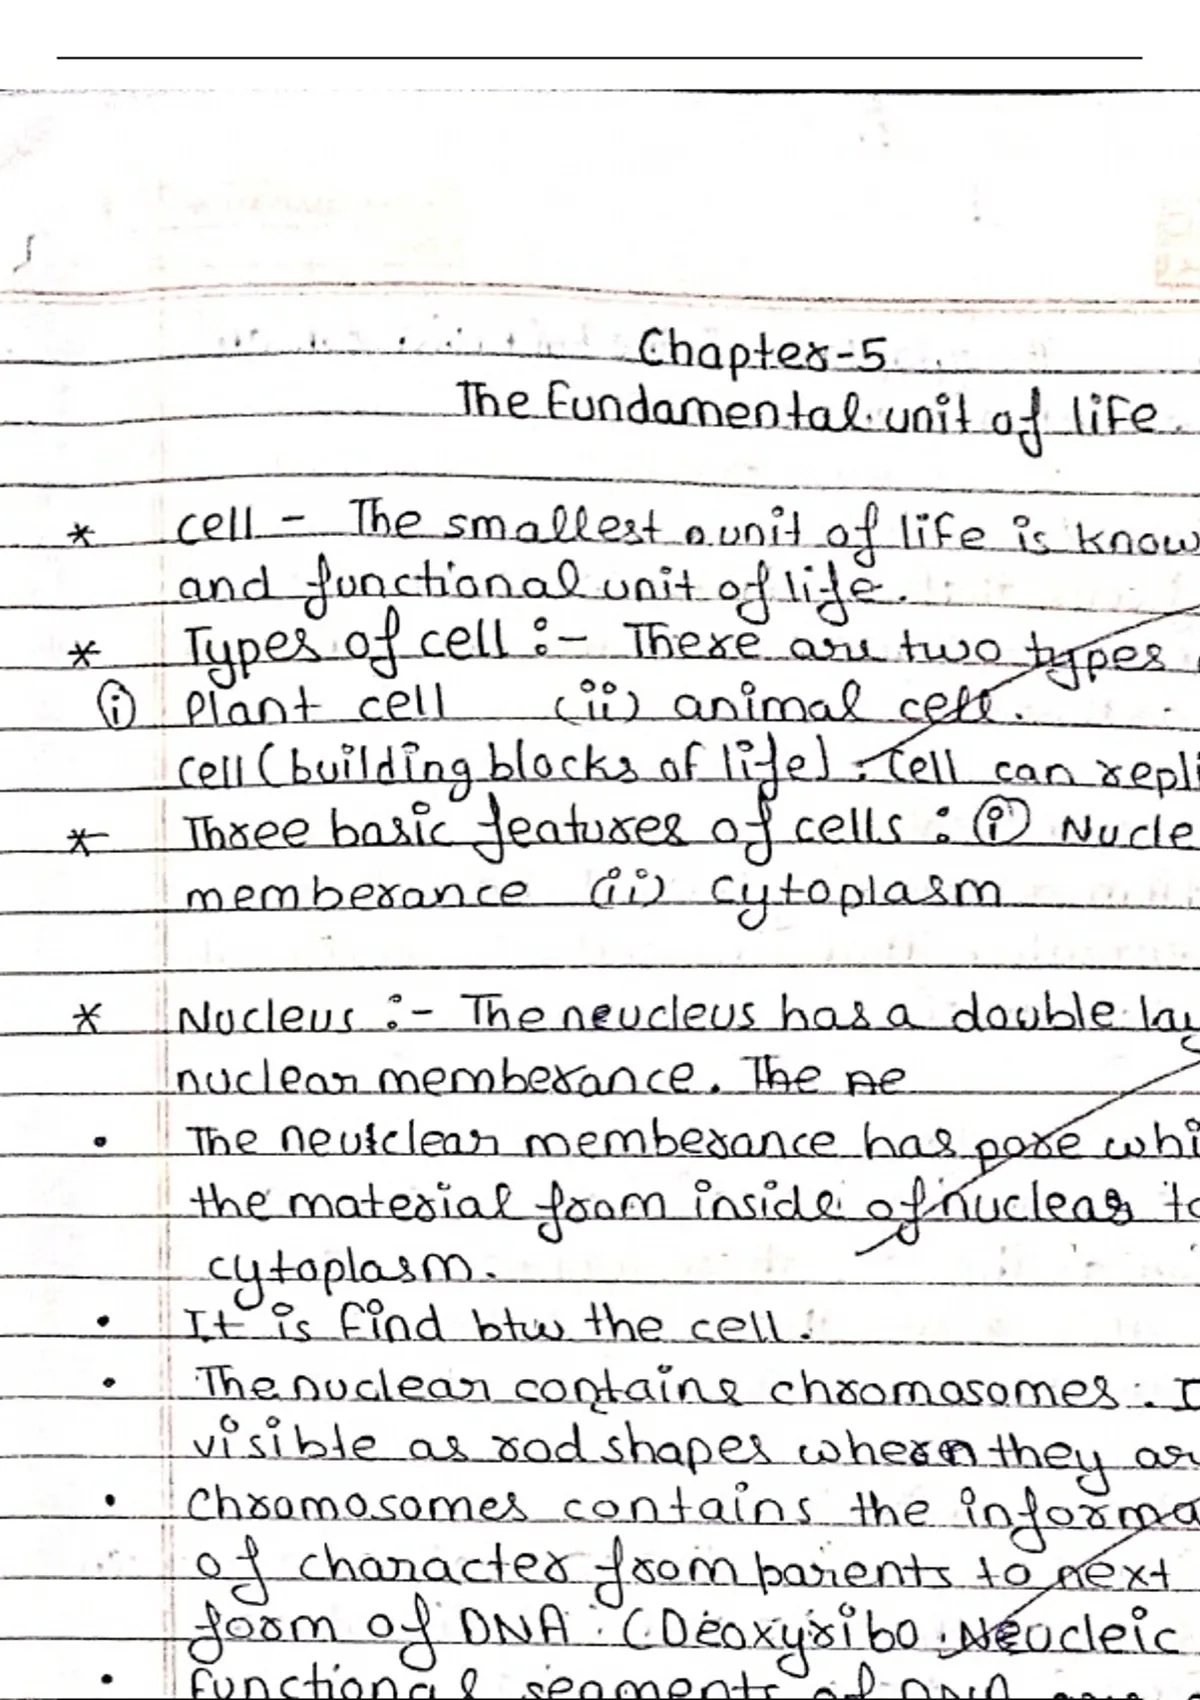 Chapter-5
The Fundamental unit of life.
* cell - The smallest unit of life is know
and functional unit of life.
* Types of cell :- There are two types
(i) Plant cell (ii) animal cell.
cell (building blocks of life). Cell can repli
* Three basic features of cells : (i) Nucle
memberance (ii) cytoplasm
* Nucleus :- The neucleus has a double lay
nuclear memberance. The ne
• The neutclear memberance has pore whi
the material from inside of nuclear to
cytoplasm.
• It is find btw the cell.
• The nuclear contains chromosomes. I
visible as rod shapes when they ar
• Chromosomes contains the informa
of character from parents to next
form of DNA (Deoxyribo Neucleic
• functional segments of DNA are